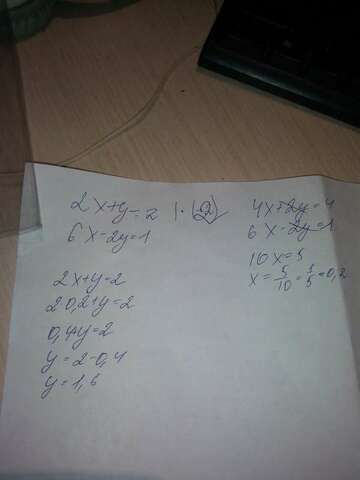 2x+y=2 |·(2)
6x-2y=1
2x+y=2
2 0,2+y=2
0,4y=2
y=2-0,4
y=1,6
4x+2y=4
6x-2y=1
10x=5
x=5/10=1/5=0,2